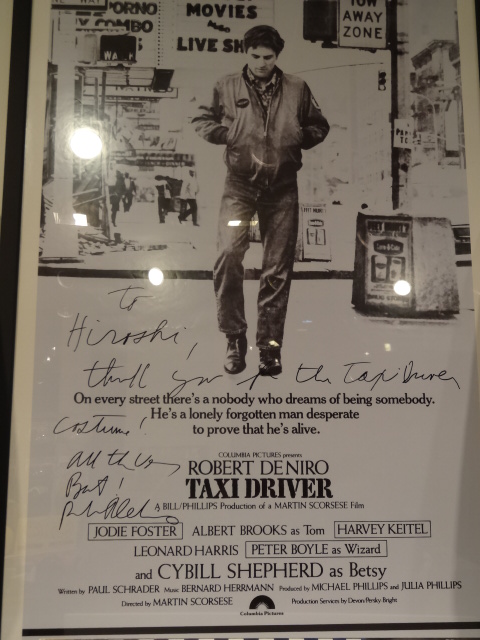 PORNO
COMBO
MOVIES
LIVE
TOW
AWAY
ZONE
To
Hiroshi,
thank you for the Taxi Driver
On every street there's a nobody who dreams of being somebody.
He's a lonely forgotten man desperate
to prove that he's alive.
costume!
all the very
Best!
COLUMBIA PICTURES presents
ROBERT DE NIRO
TAXI DRIVER
A BILL/PHILLIPS Production of a MARTIN SCORSESE Film
JODIE FOSTER ALBERT BROOKS as Tom HARVEY KEITEL
LEONARD HARRIS PETER BOYLE as Wizard
and CYBILL SHEPHERD as Betsy
Written by PAUL SCHRADER Music BERNARD HERRMANN Produced by MICHAEL PHILLIPS and JULIA PHILLIPS
Directed by MARTIN SCORSESE Production Services by Devon/Persky-Bright
Columbia Pictures